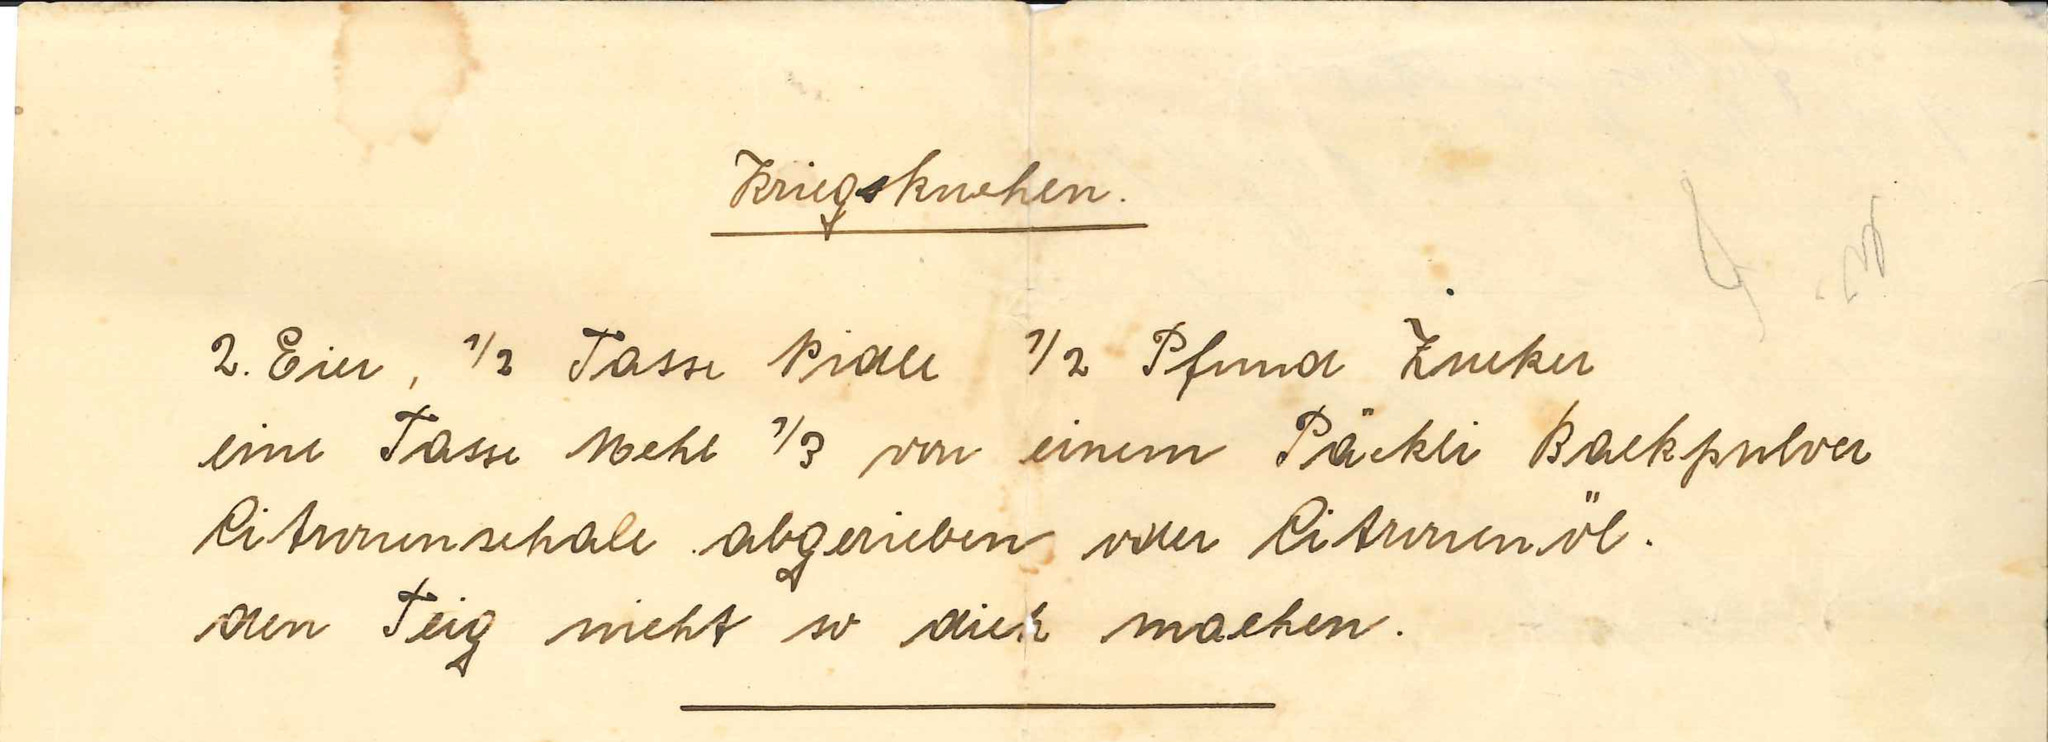 Kriegskuchen.
2. Eier, 1/2 Tasse Nidle 1/2 Pfund Zucker
eine Tasse Mehl 1/3 von einem Päckli Backpulver
Citronenschale abgerieben oder Citronenöl.
den Teig nicht so dick machen.